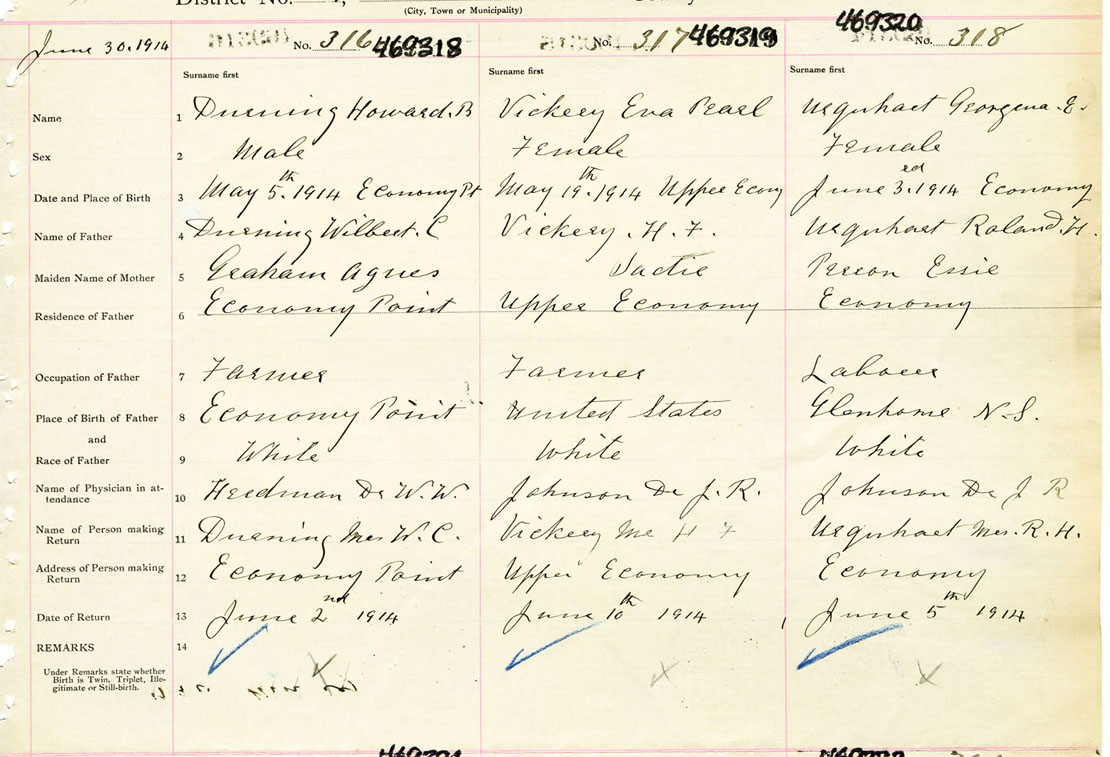 District No.
(City, Town or Municipality)
June 30.1914 No. 316 469318 No. 317 469319 469320 No. 318
Surname first Surname first Surname first
Name 1 Durning Howard. B Vickery Eva Pearl Urquhart Georgena. E.
Sex 2 Male Female Female
Date and Place of Birth 3 May 5th. 1914 Economy Pt May 19th. 1914 Upper Econy June 3rd. 1914 Economy
Name of Father 4 Durning Wilbert. C Vickery. H. F. Urquhart Roland. H.
Maiden Name of Mother 5 Graham Agnes Essie
Residence of Father 6 Economy Point Upper Economy Economy
Occupation of Father 7 Farmer Farmer Laborer
Place of Birth of Father 8 Economy Point United States Glenholme N.S.
and
Race of Father 9 White White White
Name of Physician in at-
tendance 10 Dr W. W. Johnson Dr J. R. Johnson Dr J R
Name of Person making
Return 11 Durning Mrs W. C. Vickery Mr H F Urquhart Mrs. R. H.
Address of Person making
Return 12 Economy Point Upper Economy Economy
Date of Return 13 June 2nd 1914 June 10th 1914 June 5th 1914
REMARKS 14
Under Remarks state whether
Birth is Twin, Triplet, Ille-
gitimate or Still-birth.